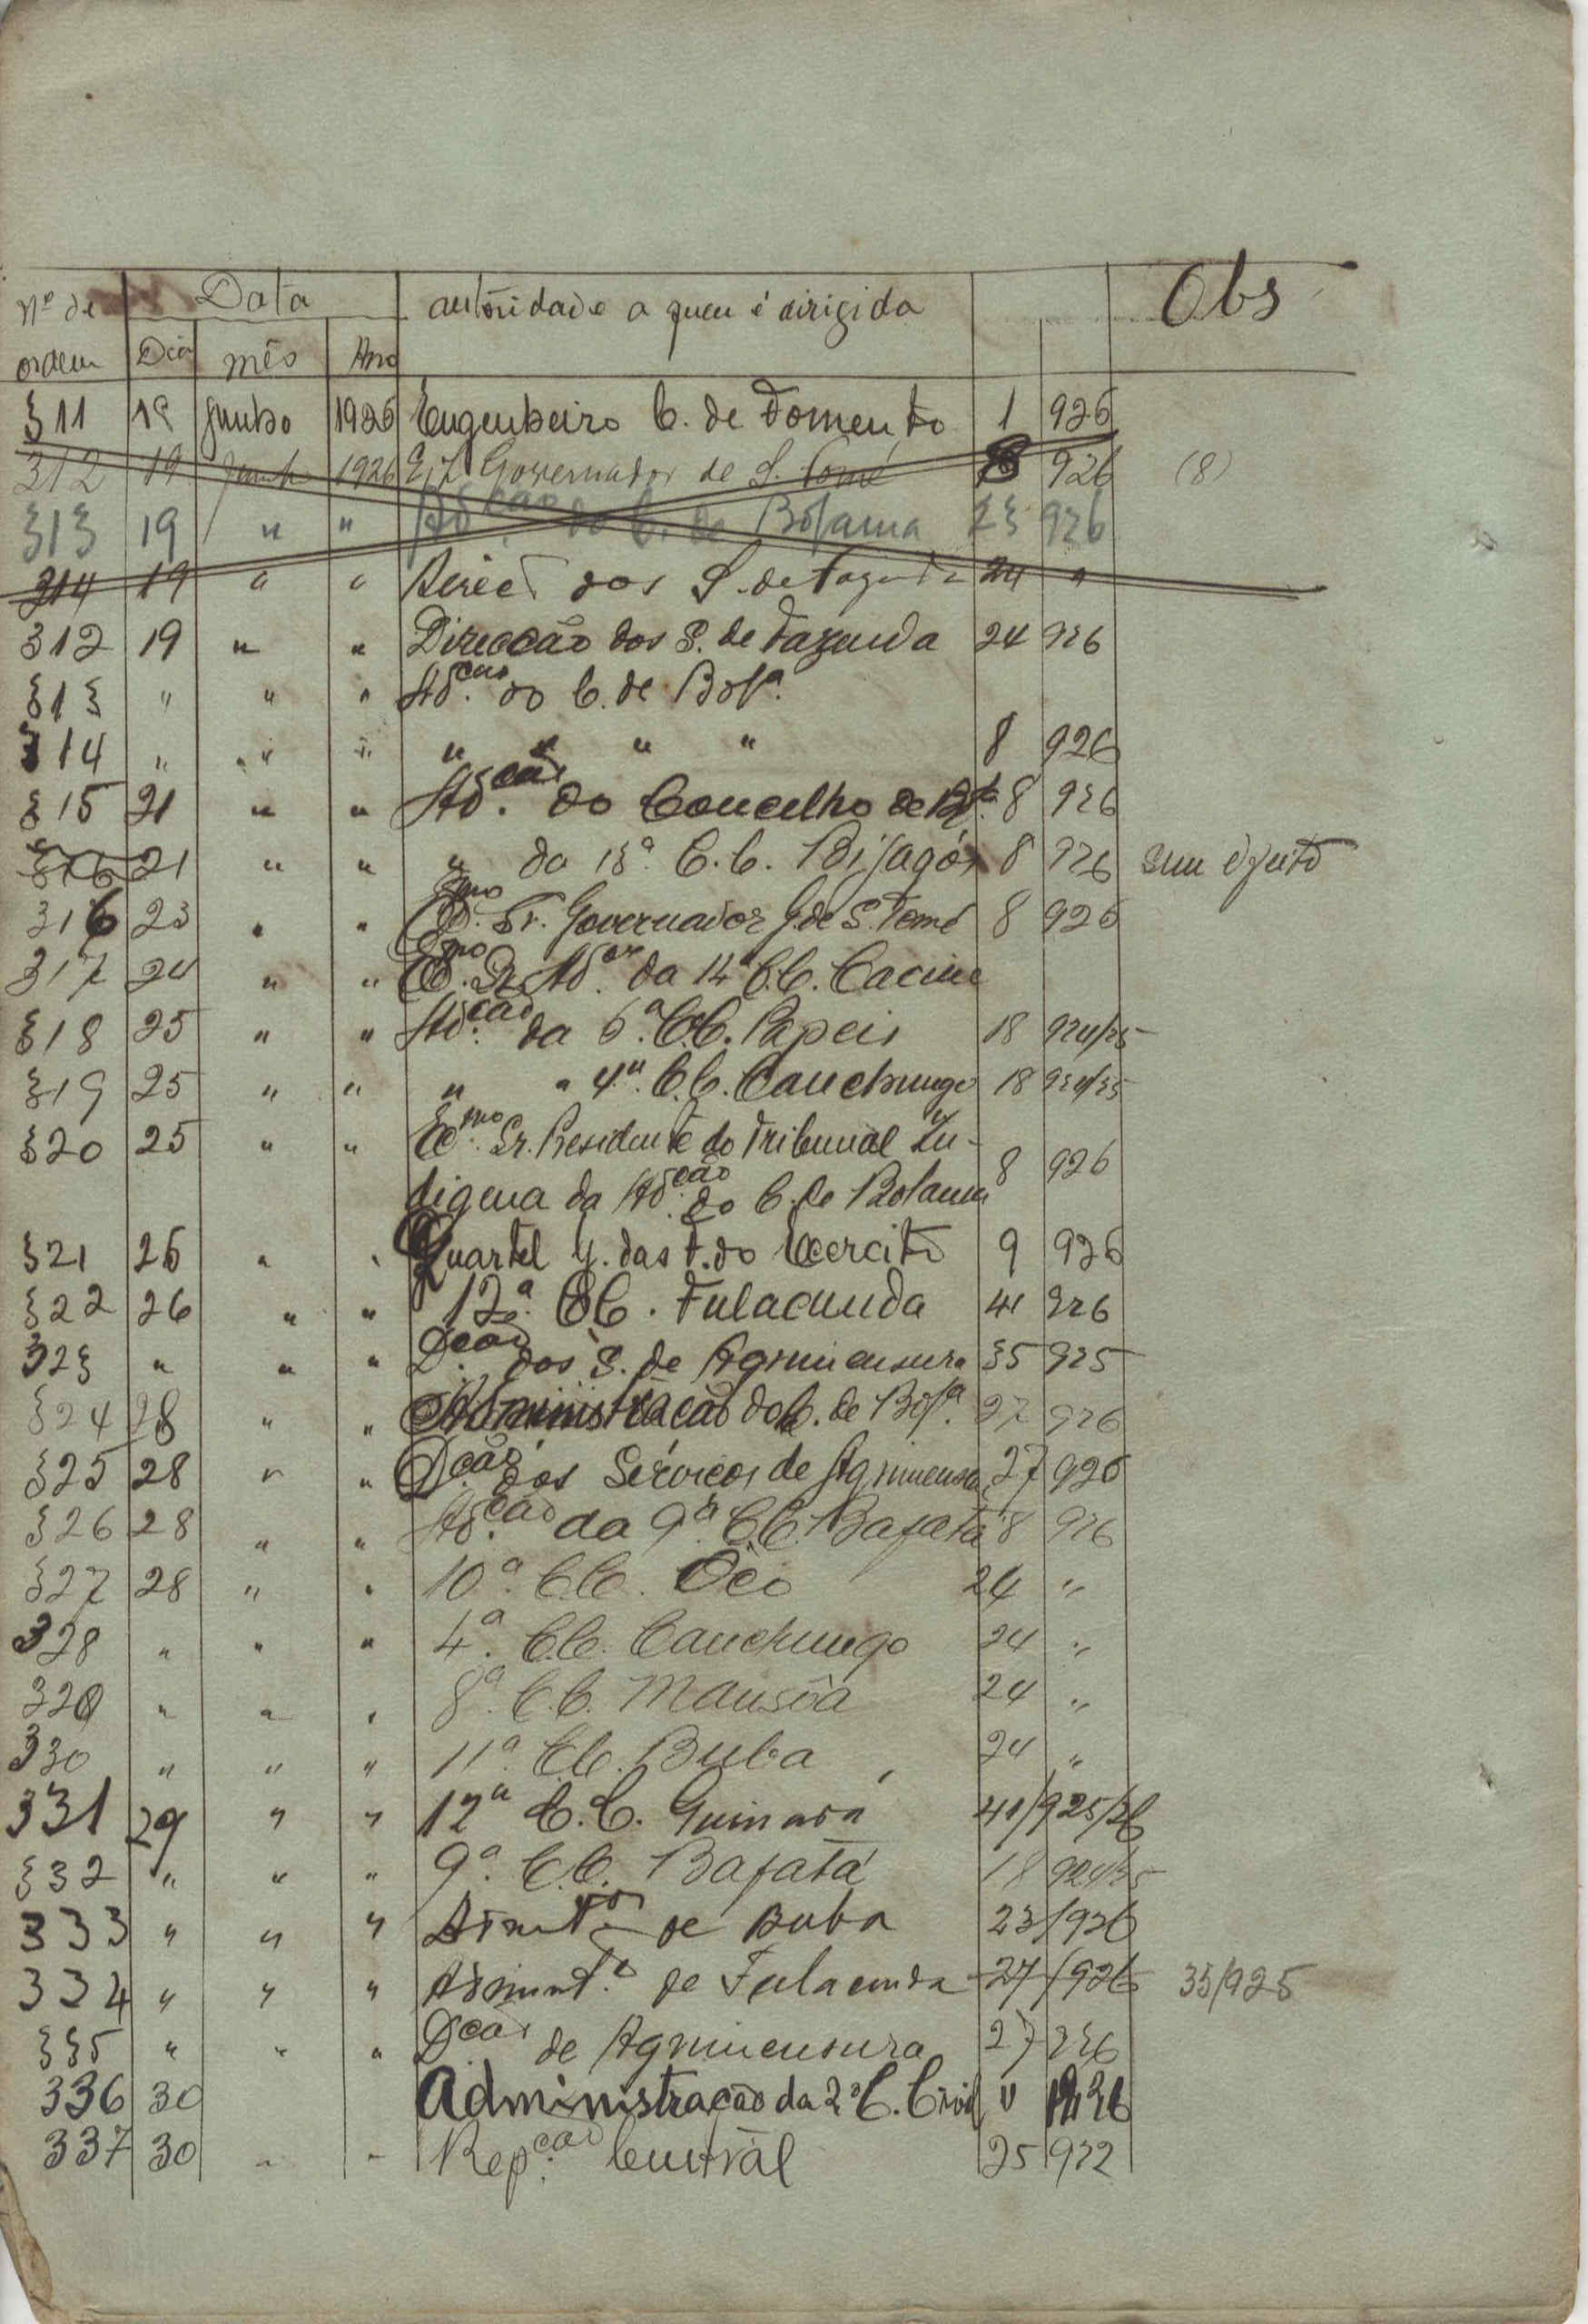 Nº de Data autoridade a quem é dirigida Obs
ordem Dia mês Ano
311 19 Junho 1926 Engenheiro C. de Fomento 1 926
312 19 Junho 1926 Governador de S. Tomé 8 926 (8)
313 19 " " Adᶜᵃᵒ do C. de Bolama 23 926
314 19 " " dos S. de 24 "
312 19 " " Direcção dos S. de Fazenda 24 926
313 " " " Adᶜᵃᵒ do C. de Bolª.
314 " " " " " " " 8 926
315 21 " " Adᶜᵃᵒ do Concelho de 8 926
316 21 " " " da 13ª C. C. Bijagós 8 926 sem efeito
316 23 " " Exᵐᵒ. Sr. Governador G. de S. Tomé 8 926
317 24 " " Exᵐᵒ. Sr. Adᵒʳ. da 14ª C.C. Cacine
318 25 " " Adᶜᵃᵒ da 6ª. C.C. Papeis 18 924/25
319 25 " " " " 4ª. C.C. Canchungo 18 924/25
320 25 " " Exᵐᵒ. Sr. Presidente do Tribunal In-
digena da Adᶜᵃᵒ do C. de Bolama 8 926
321 26 " " Quartel G. das F. do Exercito 9 926
322 26 " " 12ª. C.C. Fulacunda 41 926
323 " " " Dᶜᵃᵒ dos S. de Agrimensura 35 925
324 28 " " Administração do C. de Bolª. 27 926
325 28 " " Dᶜᵃᵒ dos Serviços de Agrimensura 27 926
326 28 " " Adᶜᵃᵒ da 9ª C.C. Bafatá 8 926
327 28 " " 10ª. C.C. Oio 24 "
328 " " " 4ª. C.C. Canchungo 24 "
329 " " " 8ª. C.C. Mansôa 24 "
330 " " " 11ª. C.C. Buba 24 "
331 29 " " 12ª C.C. Quinara 41/925/26
332 " " " 9ª. C.C. Bafatá 18 924/25
333 " " " de Buba 23/926
334 " " " de Fulacunda 27/926 35/925
335 " " " Dᶜᵃᵒ de Agrimensura 27 926
336 30 Administração da 2ª C. Civil 1926
337 30 " " Repᶜᵃᵒ Central 25 922